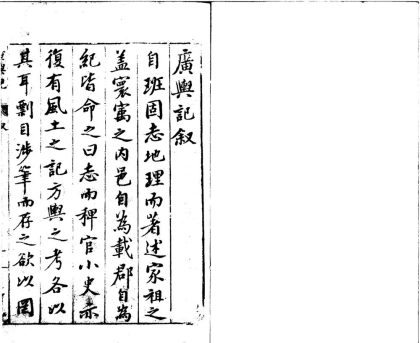 廣輿記叙
自班固志地理而著述家祖之
盖寰寓之内邑自為載郡自為
紀皆命之曰志而稗官小史亦
復有風土之記方輿之考各以
其耳剽目涉筆而存之欲以罔